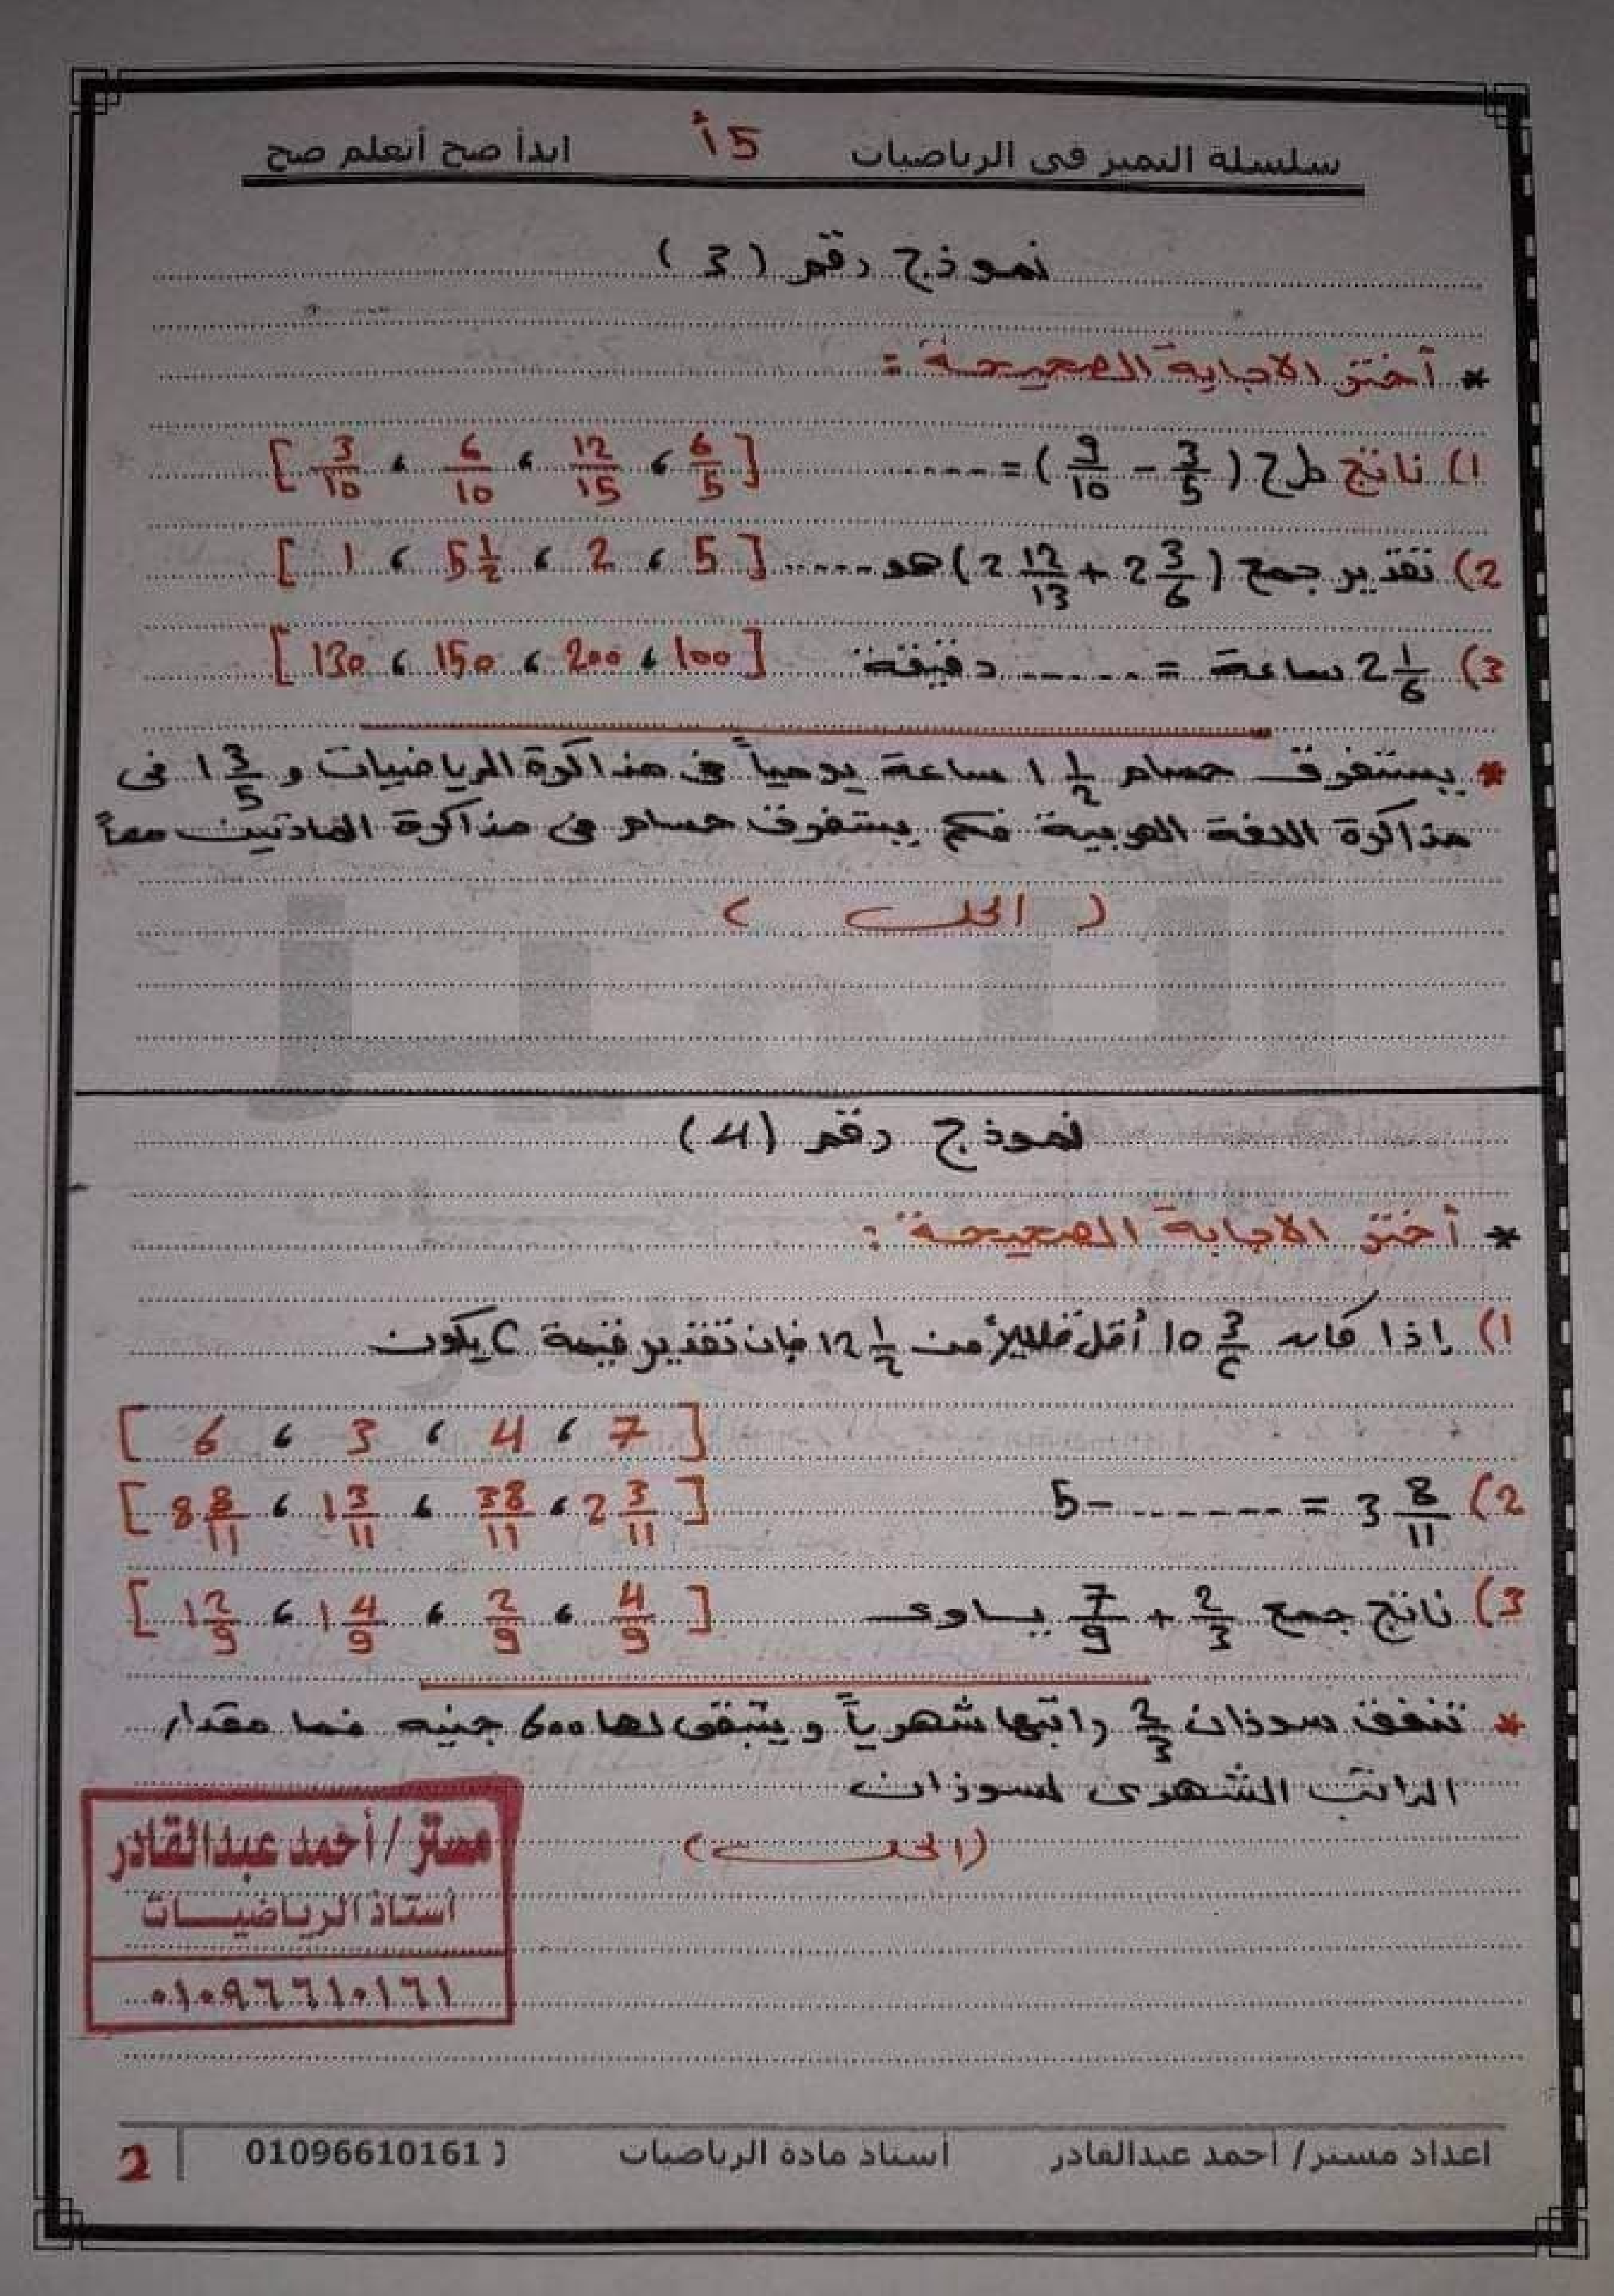 سلسلة التميز فى الرياضيات 5أ ابدأ صح أتعلم صح
نموذج رقم (3)
* أختر الاجابة الصحيحة :
1) ناتج طرح (3/5 - 9/10) = ...... [6/5 ، 12/15 ، 6/10 ، 3/10]
2) تقدير جمع (2 3/6 + 2 12/13) هو ...... [5 ، 2 ، 5 1/2 ، 1]
3) 2 1/6 ساعة = ...... دقيقة [100 ، 200 ، 150 ، 130]
* يستغرق حسام 1 1/2 ساعة يومياً فى مذاكرة الرياضيات و 1 3/5 فى
مذاكرة اللغة العربية فكم يستغرق حسام فى مذاكرة المادتين معاً
( الحل )
نموذج رقم (4)
* أختر الاجابة الصحيحة :
1) إذا كان 10 3/c أقل قليلاً من 12 1/2 فإن تقدير قيمة c يكون
[7 ، 4 ، 3 ، 6]
2) 3 8/11 = ...... - 5 [2 3/11 ، 38/11 ، 1 3/11 ، 8 8/11]
3) ناتج جمع 2/3 + 7/9 يساوى [4/9 ، 2/9 ، 1 4/9 ، 1 2/9]
* تنفق سوزان 2/3 راتبها شهرياً ويتبقى لها 600 جنيه فما مقدار
الراتب الشهرى لسوزان
(الحل)
مستر / أحمد عبدالقادر
أستاذ الرياضيـــات
٠١٠٩٦٦١٠١٦١
اعداد مستر/ أحمد عبدالقادر أستاذ مادة الرياضيات ( 01096610161 2